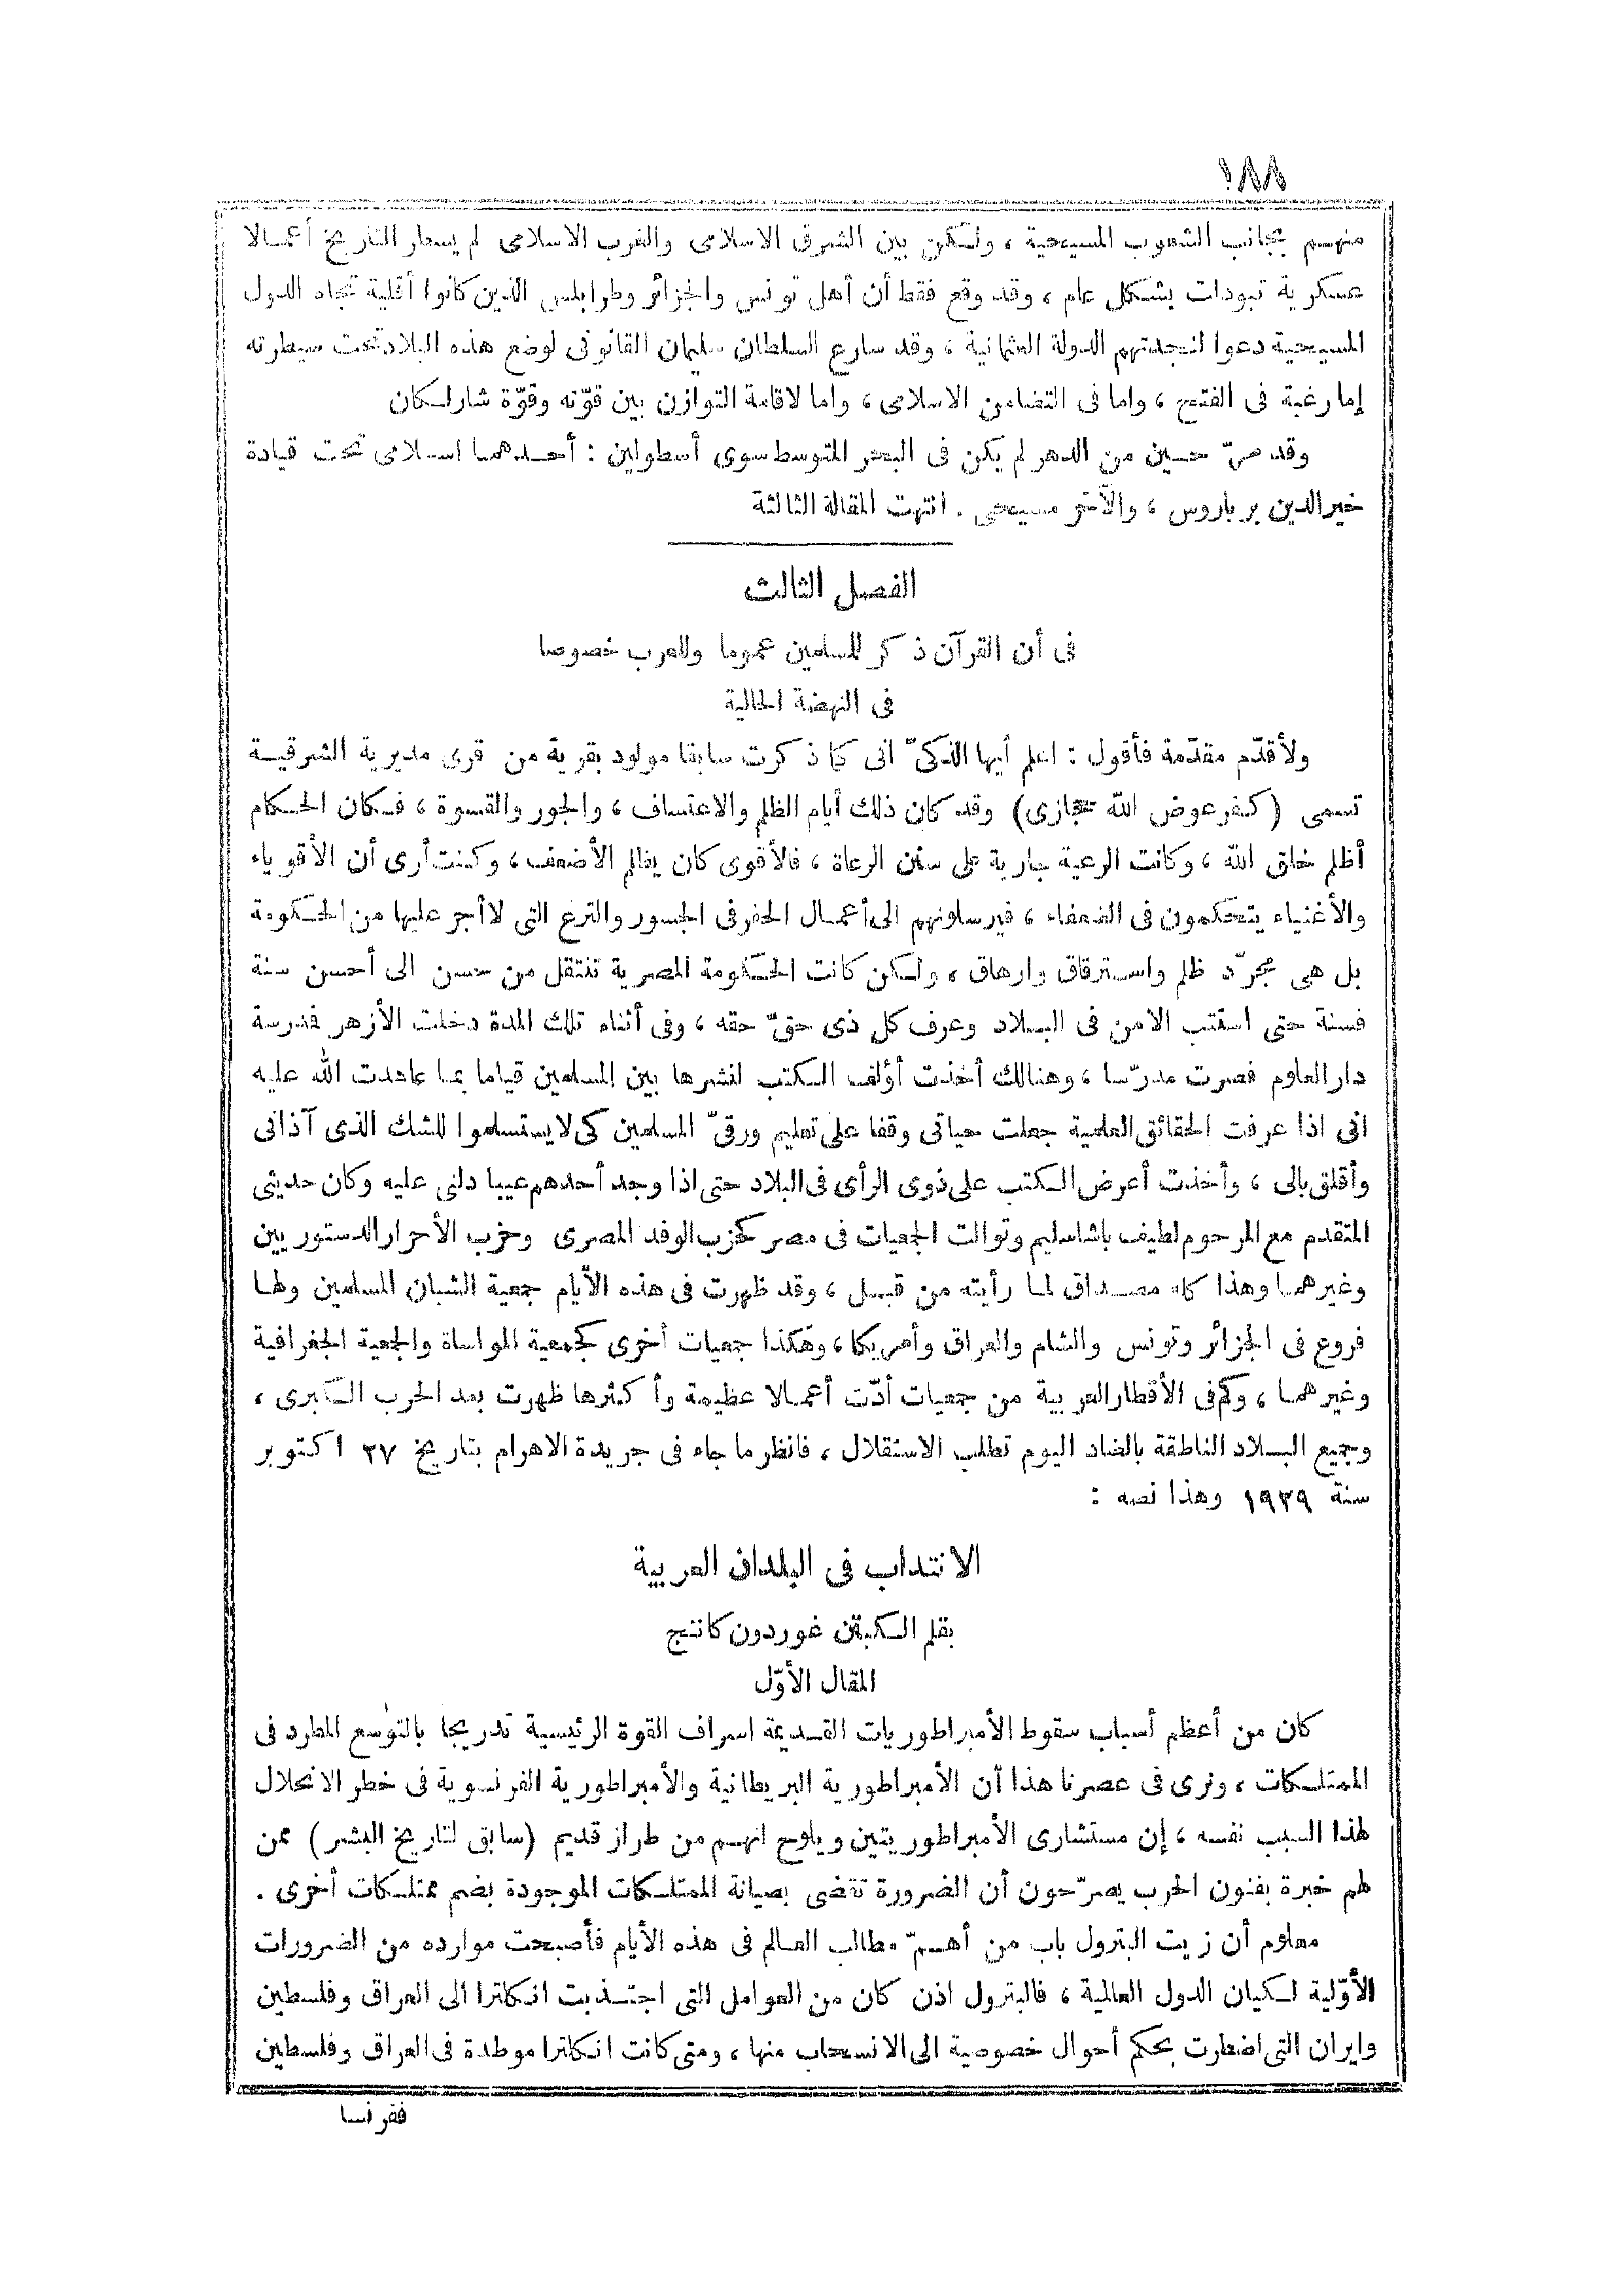 ١٨٨
منهم بجانب الشعوب المسيحية ، ولكن بين الشرق الاسلامى والغرب الاسلامى لم يسطر التاريخ أعمالا
عسكرية تبودلت بشكل عام ، وقد وقع فقط أن أهل تونس والجزائر وطرابلس الذين كانوا أقلية تجاه الدول
المسيحية دعوا لنجدتهم الدولة العثمانية ، وقد سارع السلطان سليمان القانونى لوضع هذه البلاد تحت سيطرته
إما رغبة فى الفتح ، واما فى التضامن الاسلامى ، واما لاقامة التوازن بين قوّته وقوّة شارلكان
وقد مرّ حين من الدهر لم يكن فى البحر المتوسط سوى أسطولين : أحدهما اسلامى تحت قيادة
خير الدين برباروس ، والآخر مسيحى . انتهت المقالة الثالثة
الفصل الثالث
فى أن القرآن ذكر للمسلمين عموما وللعرب خصوصا
فى النهضة الحالية
ولأقدّم مقدّمة فأقول : اعلم أيها الذكىّ انى كما ذكرت سابقا مولود بقرية من قرى مديرية الشرقية
تسمى (كفر عوض الله حجازى) وقد كان ذلك أيام الظلم والاعتساف ، والجور والقسوة ، فكان الحكام
أظلم خلق الله ، وكانت الرعية جارية على سنن الرعاة ، فالأقوى كان يظلم الأضعف ، وكنت أرى أن الأقوياء
والأغنياء يتحكمون فى الضعفاء ، فيرسلونهم الى أعمال الحفر فى الجسور والترع التى لا أجر عليها من الحكومة
بل هى مجرّد ظلم واسترقاق وارهاق ، ولكن كانت الحكومة المصرية تنتقل من حسن الى أحسن سنة
فسنة حتى استتب الامن فى البلاد وعرف كل ذى حقّ حقه ، وفى أثناء تلك المدة دخلت الأزهر فمدرسة
دار العلوم فصرت مدرّسا ، وهنالك أخذت أؤلف الكتب لنشرها بين المسلمين قياما بما عاهدت الله عليه
انى اذا عرفت الحقائق العلمية جعلت حياتى وقفا على تعليم ورقىّ المسلمين كى لا يستسلموا للشك الذى آذانى
وأقلق بالى ، وأخذت أعرض الكتب على ذوى الرأى فى البلاد حتى اذا وجد أحدهم عيبا دلنى عليه وكان حديثى
المتقدم مع المرحوم لطيف باشا سليم وتوالت الجمعيات فى مصر كحزب الوفد المصرى وحزب الأحرار الدستوريين
وغيرهما وهذا كله مصداق لما رأيته من قبل ، وقد ظهرت فى هذه الأيام جمعية الشبان المسلمين ولها
فروع فى الجزائر وتونس والشام والعراق وأمريكا ، وهكذا جمعيات أخرى كجمعية المواساة والجمعية الجغرافية
وغيرهما ، وكم فى الأقطار العربية من جمعيات أدّت أعمالا عظيمة وأكثرها ظهرت بعد الحرب الكبرى ،
وجميع البلاد الناطقة بالضاد اليوم تطلب الاستقلال ، فانظر ما جاء فى جريدة الاهرام بتاريخ ٢٧ اكتوبر
سنة ١٩٢٩ وهذا نصه :
الانتداب فى البلدان العربية
بقلم الكبتن غوردون كاننج
المقال الأوّل
كان من أعظم أسباب سقوط الأمبراطوريات القديمة اسراف القوة الرئيسية تدريجا بالتوسع المطرد فى
الممتلكات ، ونرى فى عصرنا هذا أن الأمبراطورية البريطانية والأمبراطورية الفرنسوية فى خطر الانحلال
لهذا السبب نفسه ، إن مستشارى الأمبراطوريتين ويلوح انهم من طراز قديم (سابق لتاريخ البشر) ممن
لهم خبرة بفنون الحرب يصرّحون أن الضرورة تقضى بصيانة الممتلكات الموجودة بضم ممتلكات أخرى .
معلوم أن زيت البترول باب من أهمّ مطالب العالم فى هذه الأيام فأصبحت موارده من الضرورات
الأوّلية لكيان الدول العالمية ، فالبترول اذن كان من العوامل التى اجتذبت انكلترا الى العراق وفلسطين
وايران التى اضطرت بحكم أحوال خصوصية الى الانسحاب منها ، ومتى كانت انكلترا موطدة فى العراق وفلسطين
ففرنسا